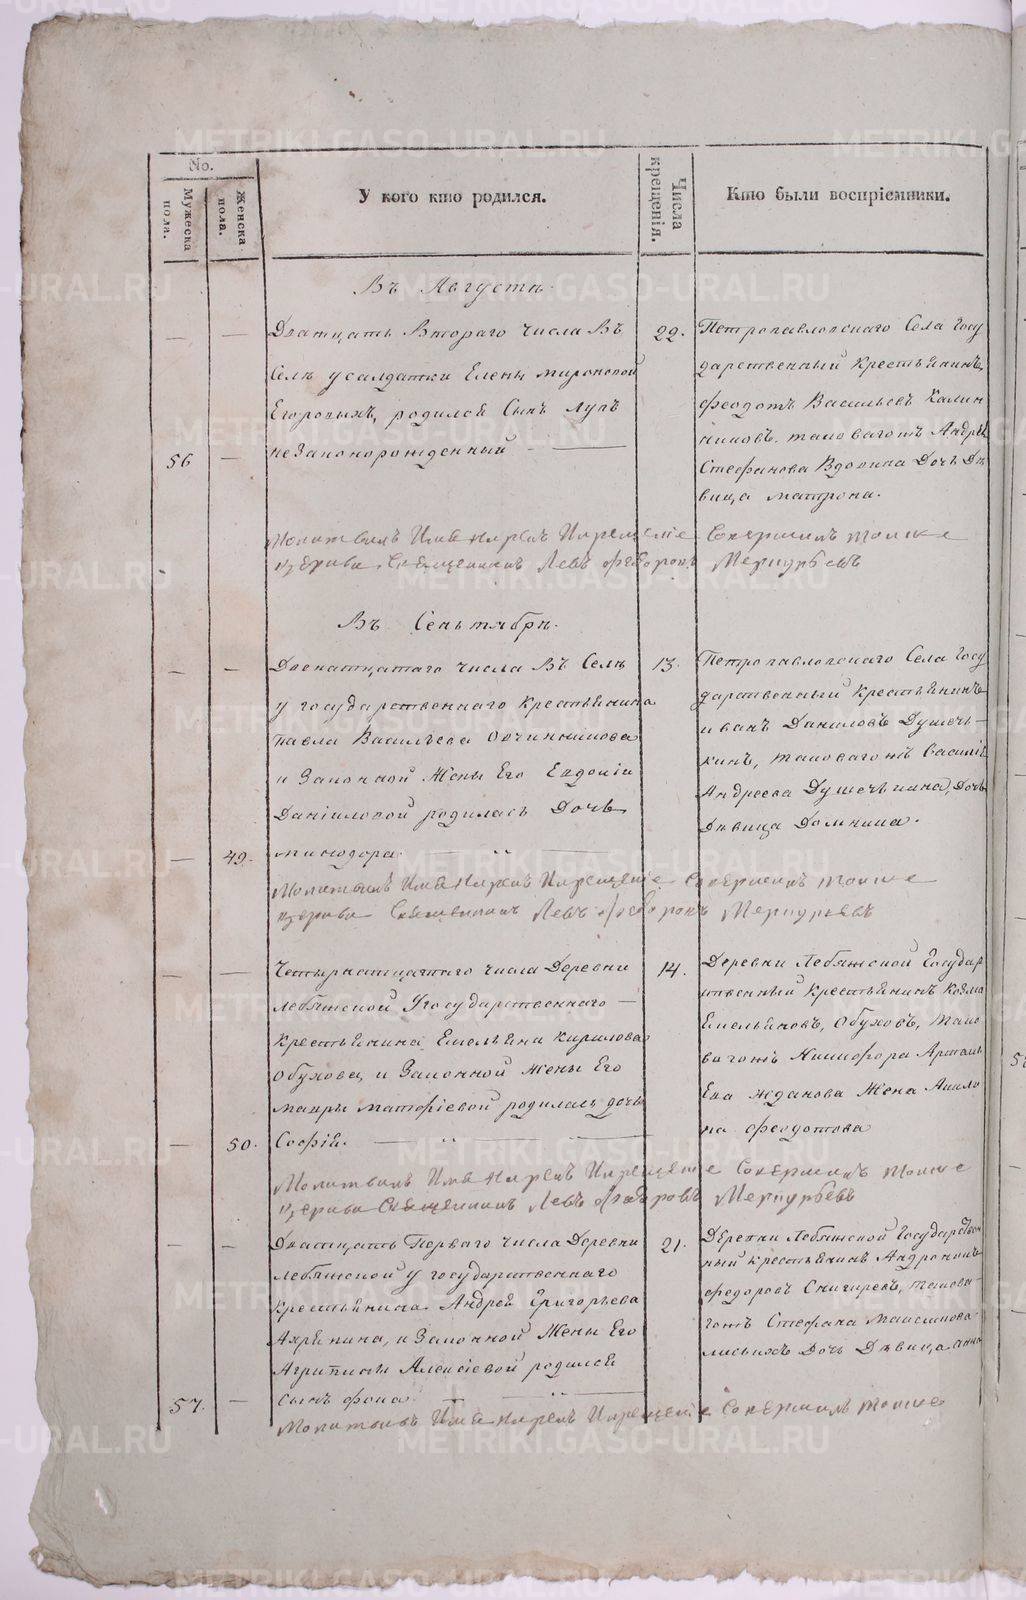 No.
Мужеска пола.
Женска пола.
У кого кто родился.
Числа крещенія.
Кто были воспріемники.
Въ Августѣ.
Дватцать Втораго Числа Въ
Селѣ у салдатки Елены мироновой
Егоровыхъ, родился Сынъ Лупъ
незаконорожденный
56
22.
Петропавловскаго Села Госу
дарственный Крестьянинъ
феодотъ Васильевъ Калин
никовъ. таковагожъ Андрея
Стефанова Вдовина Дочь Дѣ
вица матрона.
Молитвилъ Имя нарекъ Икрещеніе Совершилъ тоиже
церкви Священникъ Левъ феодоровъ Меркурьевъ
Въ Сентябрѣ.
Двенатцатаго числа Въ Селѣ
у государственнаго крестьянина
павла Васильева Овчинникова
и Законной Жены Его Евдокіи
Даніиловой родилась Дочь
минодора.
49.
13.
Петропавловскаго Села Госу
дарственный Крестьянинъ
иванъ Даниловъ Душечь-
кинъ, таковагожъ Василія
Андреева Душечькина, Дочь
Дѣвица Домнина.
Молитвилъ Имя Нарекъ Икрещеніе Совершилъ тоиже
церкви Священникъ Левъ феодоровъ Меркурьевъ
Четырнатцатаго числа Деревни
Лебяжской Угосударственнаго
крестьянина Емельяна кирилова
Обухова, и Законной жены Его
мавры матфіевой родилась дочь
Софія.
50.
14.
Деревни Лебяжской Государ
ственный Крестьянинъ козма
Емельяновъ, Обуховъ, тако
вагожъ Никифора
Ева жданова Жена Акили
на феодотова
Молитвилъ Имя Нарекъ Икрещеніе Совершилъ тоиже
церкви Священникъ Левъ феодоровъ Меркурьевъ
Дватцать Перваго числа Деревни
Лебяжской у государственнаго
крестьянина Андрея Григорьева
и Законной Жены Его
Агрипины Алексіевой родился
Сынъ фока
57.
21.
Деревни Лебяжской Государствен
ный крестьянинъ Андроникъ
федоровъ Снигиревъ, такова-
гожъ Стефана Максимова
Дочь Дѣвица анна
Молитвилъ Имя нарекъ Икрещеніе Совершилъ тоиже
METRIKI.GASO-URAL.RU